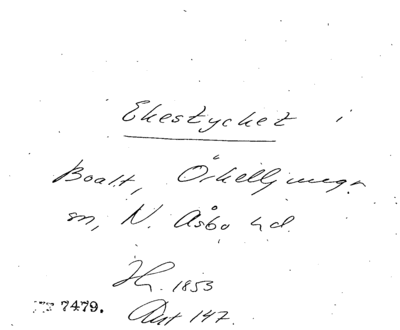 Ekestycket i
Boalt, Örkelljunga
sn, N. Åsbo hd.
Hr. 1853
7479. Akt 147.